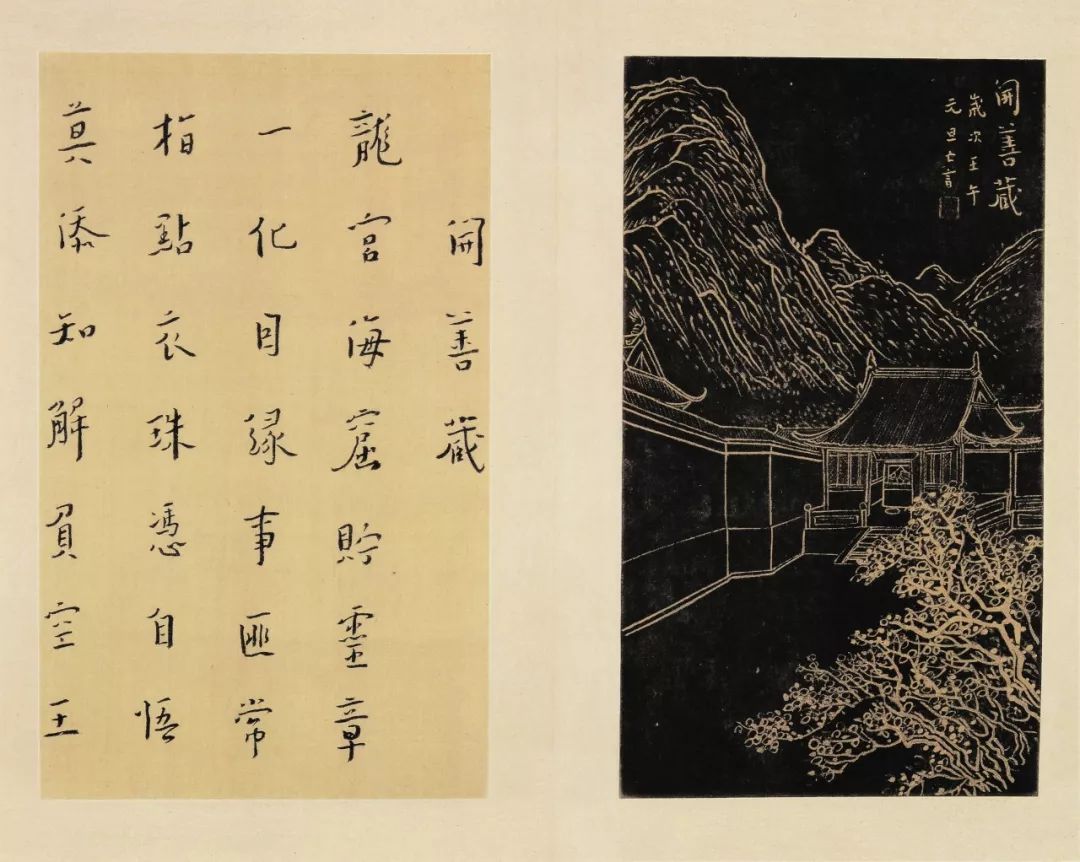 開善藏
歲次壬午
元旦亡言
開善藏
龍宮海窟貯靈章
一化因緣事匪常
指點衣珠憑自悟
莫添知解負空王